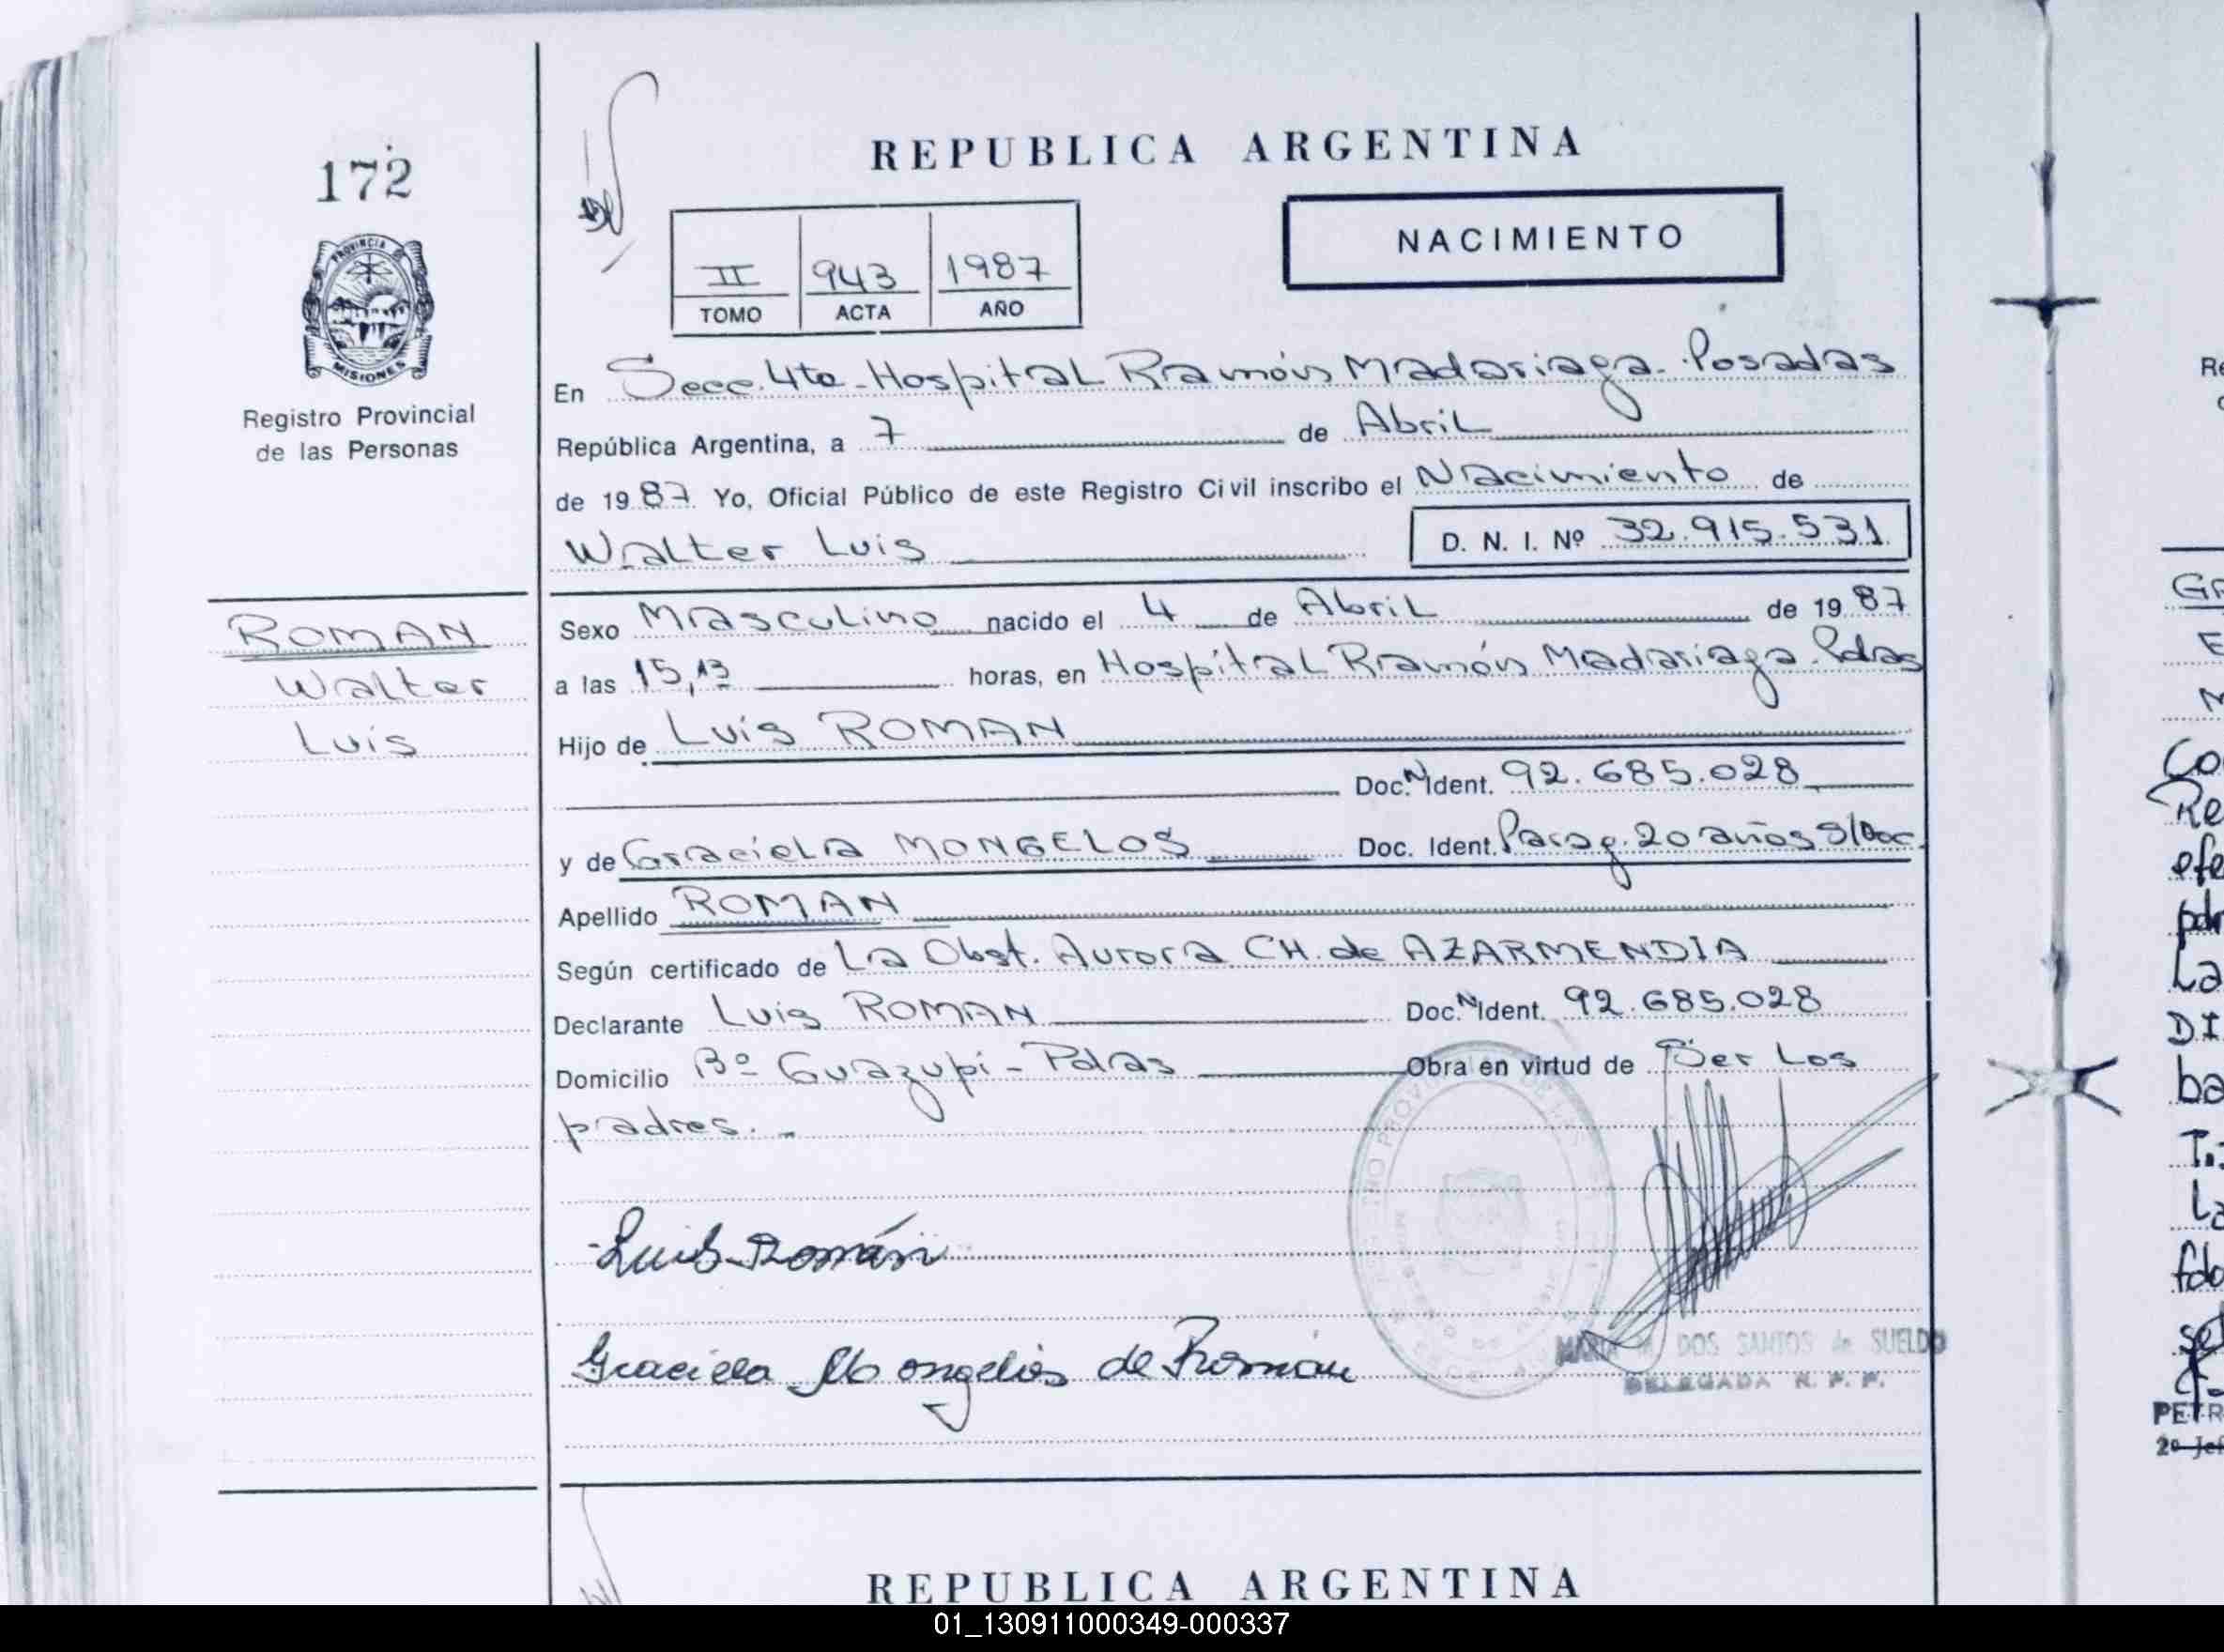 172
PROVINCIA
MISIONES
Registro Provincial
de las Personas
ROMAN
Walter
Luis
REPUBLICA ARGENTINA
NACIMIENTO
II 943 1987
TOMO ACTA AÑO
En Secc. 4ta - Hospital Ramón Madariaga - Posadas
República Argentina, a 7 de Abril
de 1987 Yo, Oficial Público de este Registro Civil inscribo el Nacimiento de
Walter Luis D. N. I. Nº 32.915.531
Sexo Masculino nacido el 4 de Abril de 1987
a las 15,13 horas, en Hospital Ramón Madariaga. Pdas
Hijo de Luis ROMAN
Doc. N Ident. 92.685.028
y de Graciela MONGELOS Doc. Ident. Parag. 20 años S/Doc.
Apellido ROMAN
Según certificado de La Obst. Aurora CH. de AZARMENDIA
Declarante Luis ROMAN Doc. N Ident. 92.685.028
Domicilio Bº Guazupi - Pdas Obra en virtud de Ser Los
padres. -
Luis Román
Graciela Mongelós de Román
MARIA DOS SANTOS de SUELDO
DELEGADA R. P. P.
REPUBLICA ARGENTINA
01_130911000349-000337